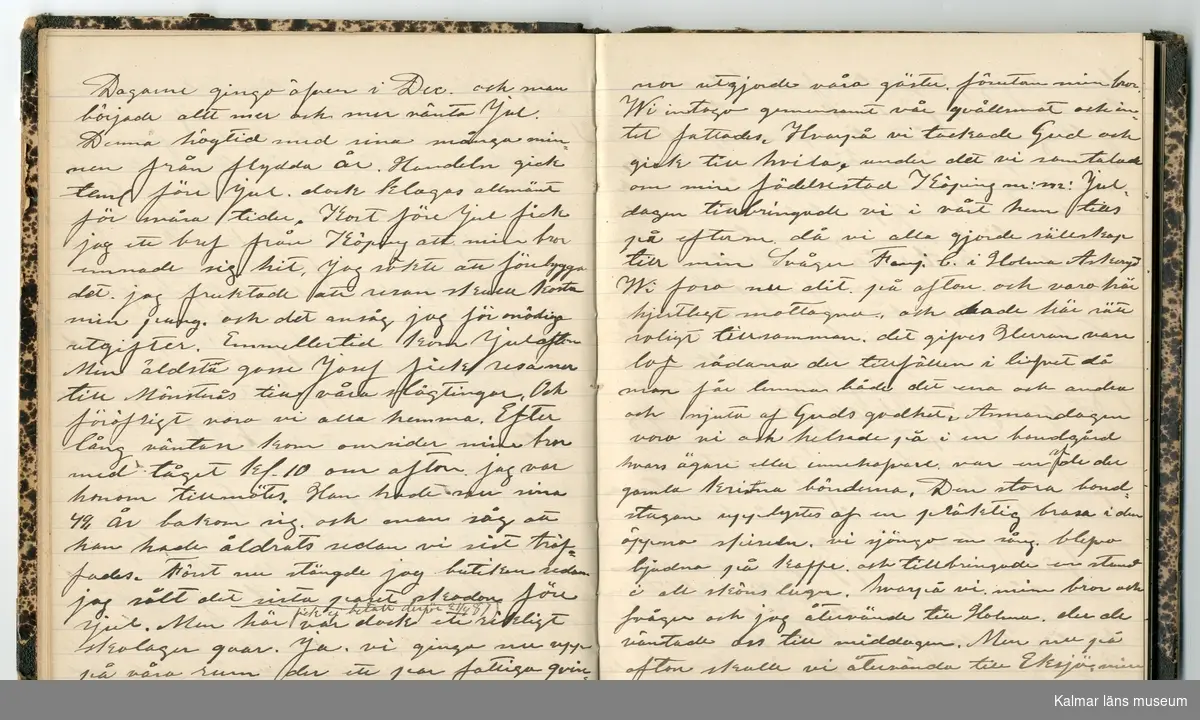 Dagarne gingo äfven i Dec. och man
började allt mer och mer vänta Jul.
Denna högtid med sina många min-
nen från flydda år. Handeln gick
före Jul. dock klagas allmänt
för svåra tider. Kort före Jul fick
jag ett bref från Köping att min bror
ämnade sig hit, jag sökte att förebygga
det. jag fruktade att resan skulle kosta
min pung. och det ansåg jag för onödiga
utgifter. Emmellertid kom Julafton
Min äldsta gosse Josef fick resa ner
till Mönsterås till våra slägtingar. Och
föröfrigt voro vi alla hemma. Efter
lång väntan kom omsider min bror
med tåget kl. 10 om afton. jag var
honom tillmötes. Han hade nu sina
49 år bakom sig. och man såg att
han hade åldrats sedan vi sist träf-
fades. Först nu stängde jag butiken sedan
jag sålt det sista paret skodon före
Jul. Men här var dock ett rikligt
skolager qvar. Ja. vi gingo nu upp
på våra rum der ett par fattiga qvin-
nor utgjorde våra gäster, förutan min bror.
Wi intogo gemensamt vår qvällsmat och in-
tet fattades. Hvarpå vi tackade Gud och
gick till hvila, under det vi samtalade
om min födelsestad Köping m:m: Jul-
dagen tillbringade vi i vårt hem tills
på efterm. då vi alla gjorde sällskap
till min Svåger Fanj. C. i Holma Askeryd
Wi foro nu dit på afton och voro här
hjertligt mottagna, och hade här rätt
roligt tillsamman. det gifves Herran vare
lof sådana der tillfällen i lifvet då
man får lemna både det ena och andra
och njuta af Guds godhet. Annandagen
voro vi och helsade på i en bondgård
hvars ägare eller innehafvare var en af de der
gamla kristna bönderna. Den stora bond-
stugan upplystes af en präktig brasa i den
öppna spiseln. vi sjöngo en sång. blefvo
bjudna på kaffe. och tillbringade en stund
i all sköns lugn. hvarpå vi. min bror och
svåger och jag återvände till Holma. der de
väntade oss till middagen. Men nu på
afton skulle vi återvända till Eksjö, min
Kalmar läns museum